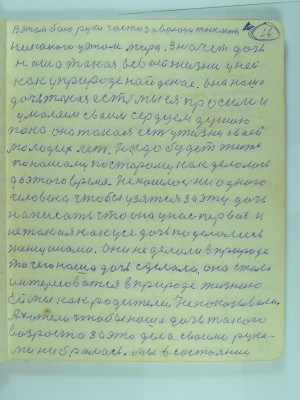 26
В этом бою руки часто
никакого в том мира. Значет дочь
наша такая во своей жизни у ней
как у природе найденое. Она наша
дочь такая есть мы ея просим и
умоляем своим сердцем душою
пока она такая есть у жизни своей
молодых лет. Надо будет жить
по нашому по старому как делалось
до этого время. Не нашлось ни одного
человека чтобы узятся за эту дочь
написать что она у нас первая и
не такая как усе дочь поделались
женщинами. Они не делали в природе
то чего наша дочь сделала она стала
интересоватся в природе жизнию
Ей мы как родители. Не показывали.
А хотели чтобы наша дочь такого
возроста за это дела своими рука-
ми не бралась. мы в состоянии